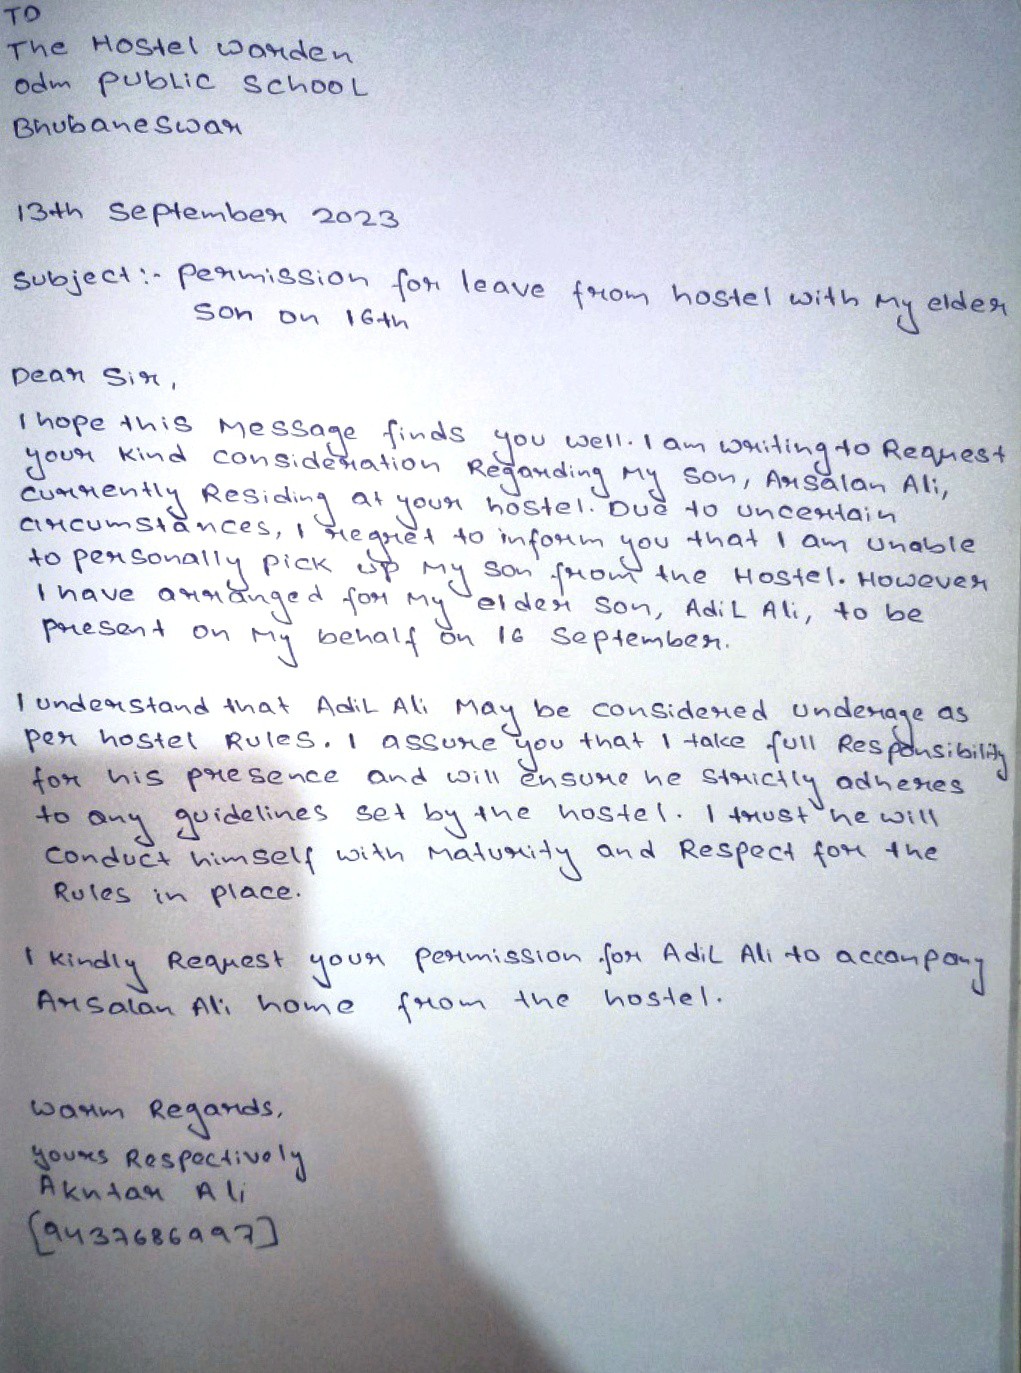 TO
The Hostel warden
odm public school
Bhubaneswar
13th september 2023
subject:- permission for leave from hostel with my elder
son on 16th
Dear sir,
I hope this message finds you well. I am writing to Request
your kind consideration Regarding my son, Arsalan Ali,
currently Residing at your hostel. Due to uncertain
circumstances, I regret to inform you that I am unable
to personally pick up my son from the Hostel. However
I have arranged for my elder son, Adil Ali, to be
present on my behalf on 16 september.
I understand that Adil Ali may be considered underage as
per hostel Rules. I assure you that I take full Responsibility
for his presence and will ensure he strictly adheres
to any guidelines set by the hostel. I trust he will
conduct himself with maturity and Respect for the
Rules in place.
I kindly Request your permission for Adil Ali to accompany
Arsalan Ali home from the hostel.
warm Regards,
yours Respectively
Akhtar Ali
[9437686997]